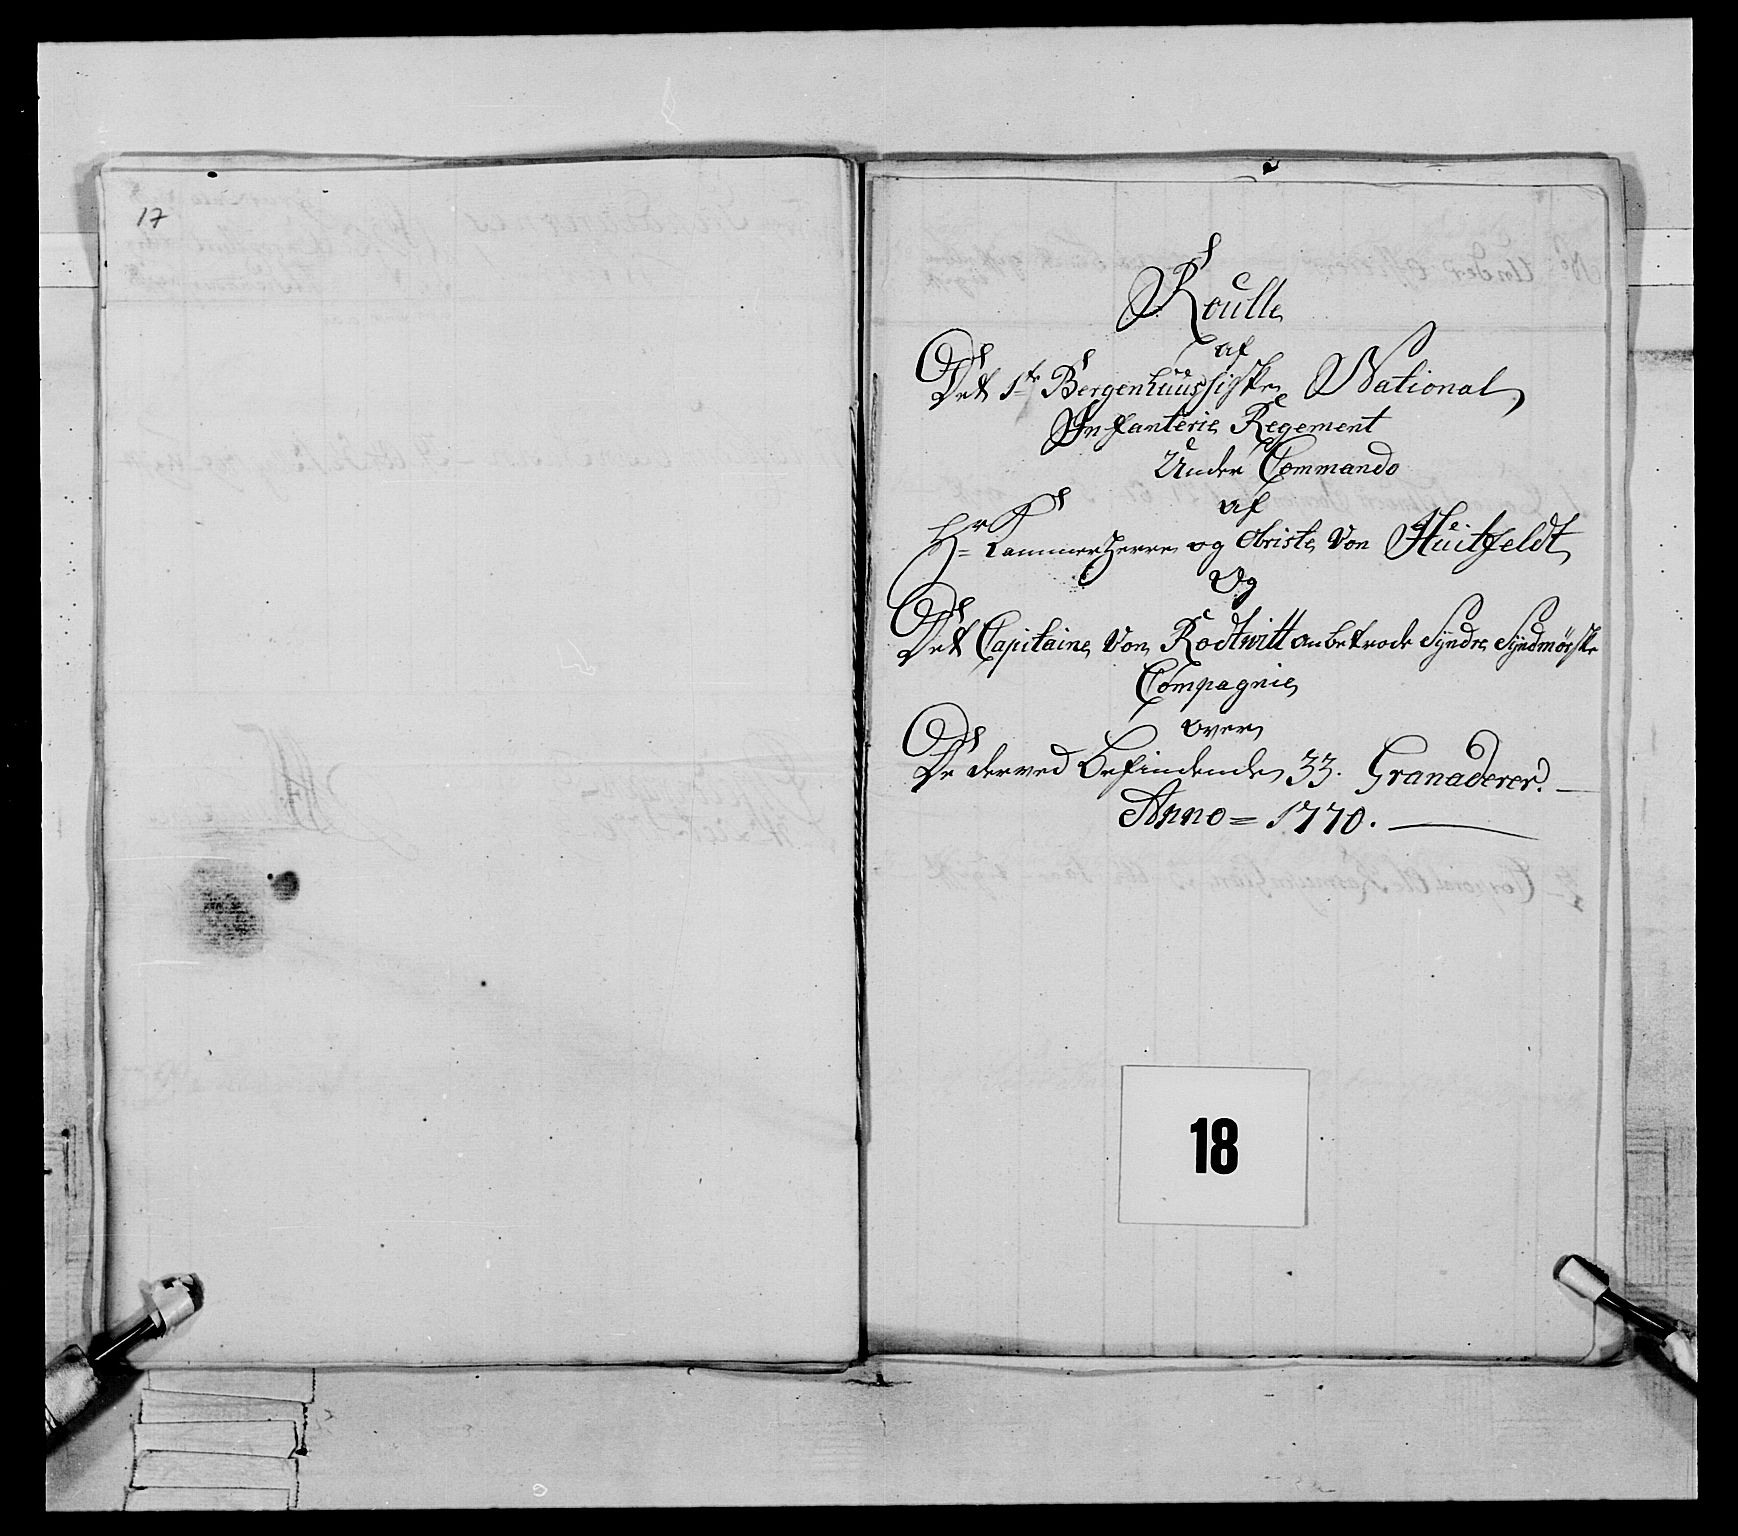 17
Roulle
af
Det 1te Bergenhuusiske National
Infanterie Regement
Under Commando
af
Hr Kammerherre og Obriste Von Hüitfeldt
Og
Det Capitaine Von Rodtwitt anbetrode Syndre Syndmørske
Compagnie
over
De derved befindende 33. Granaderer.
Anno = 1770.
18